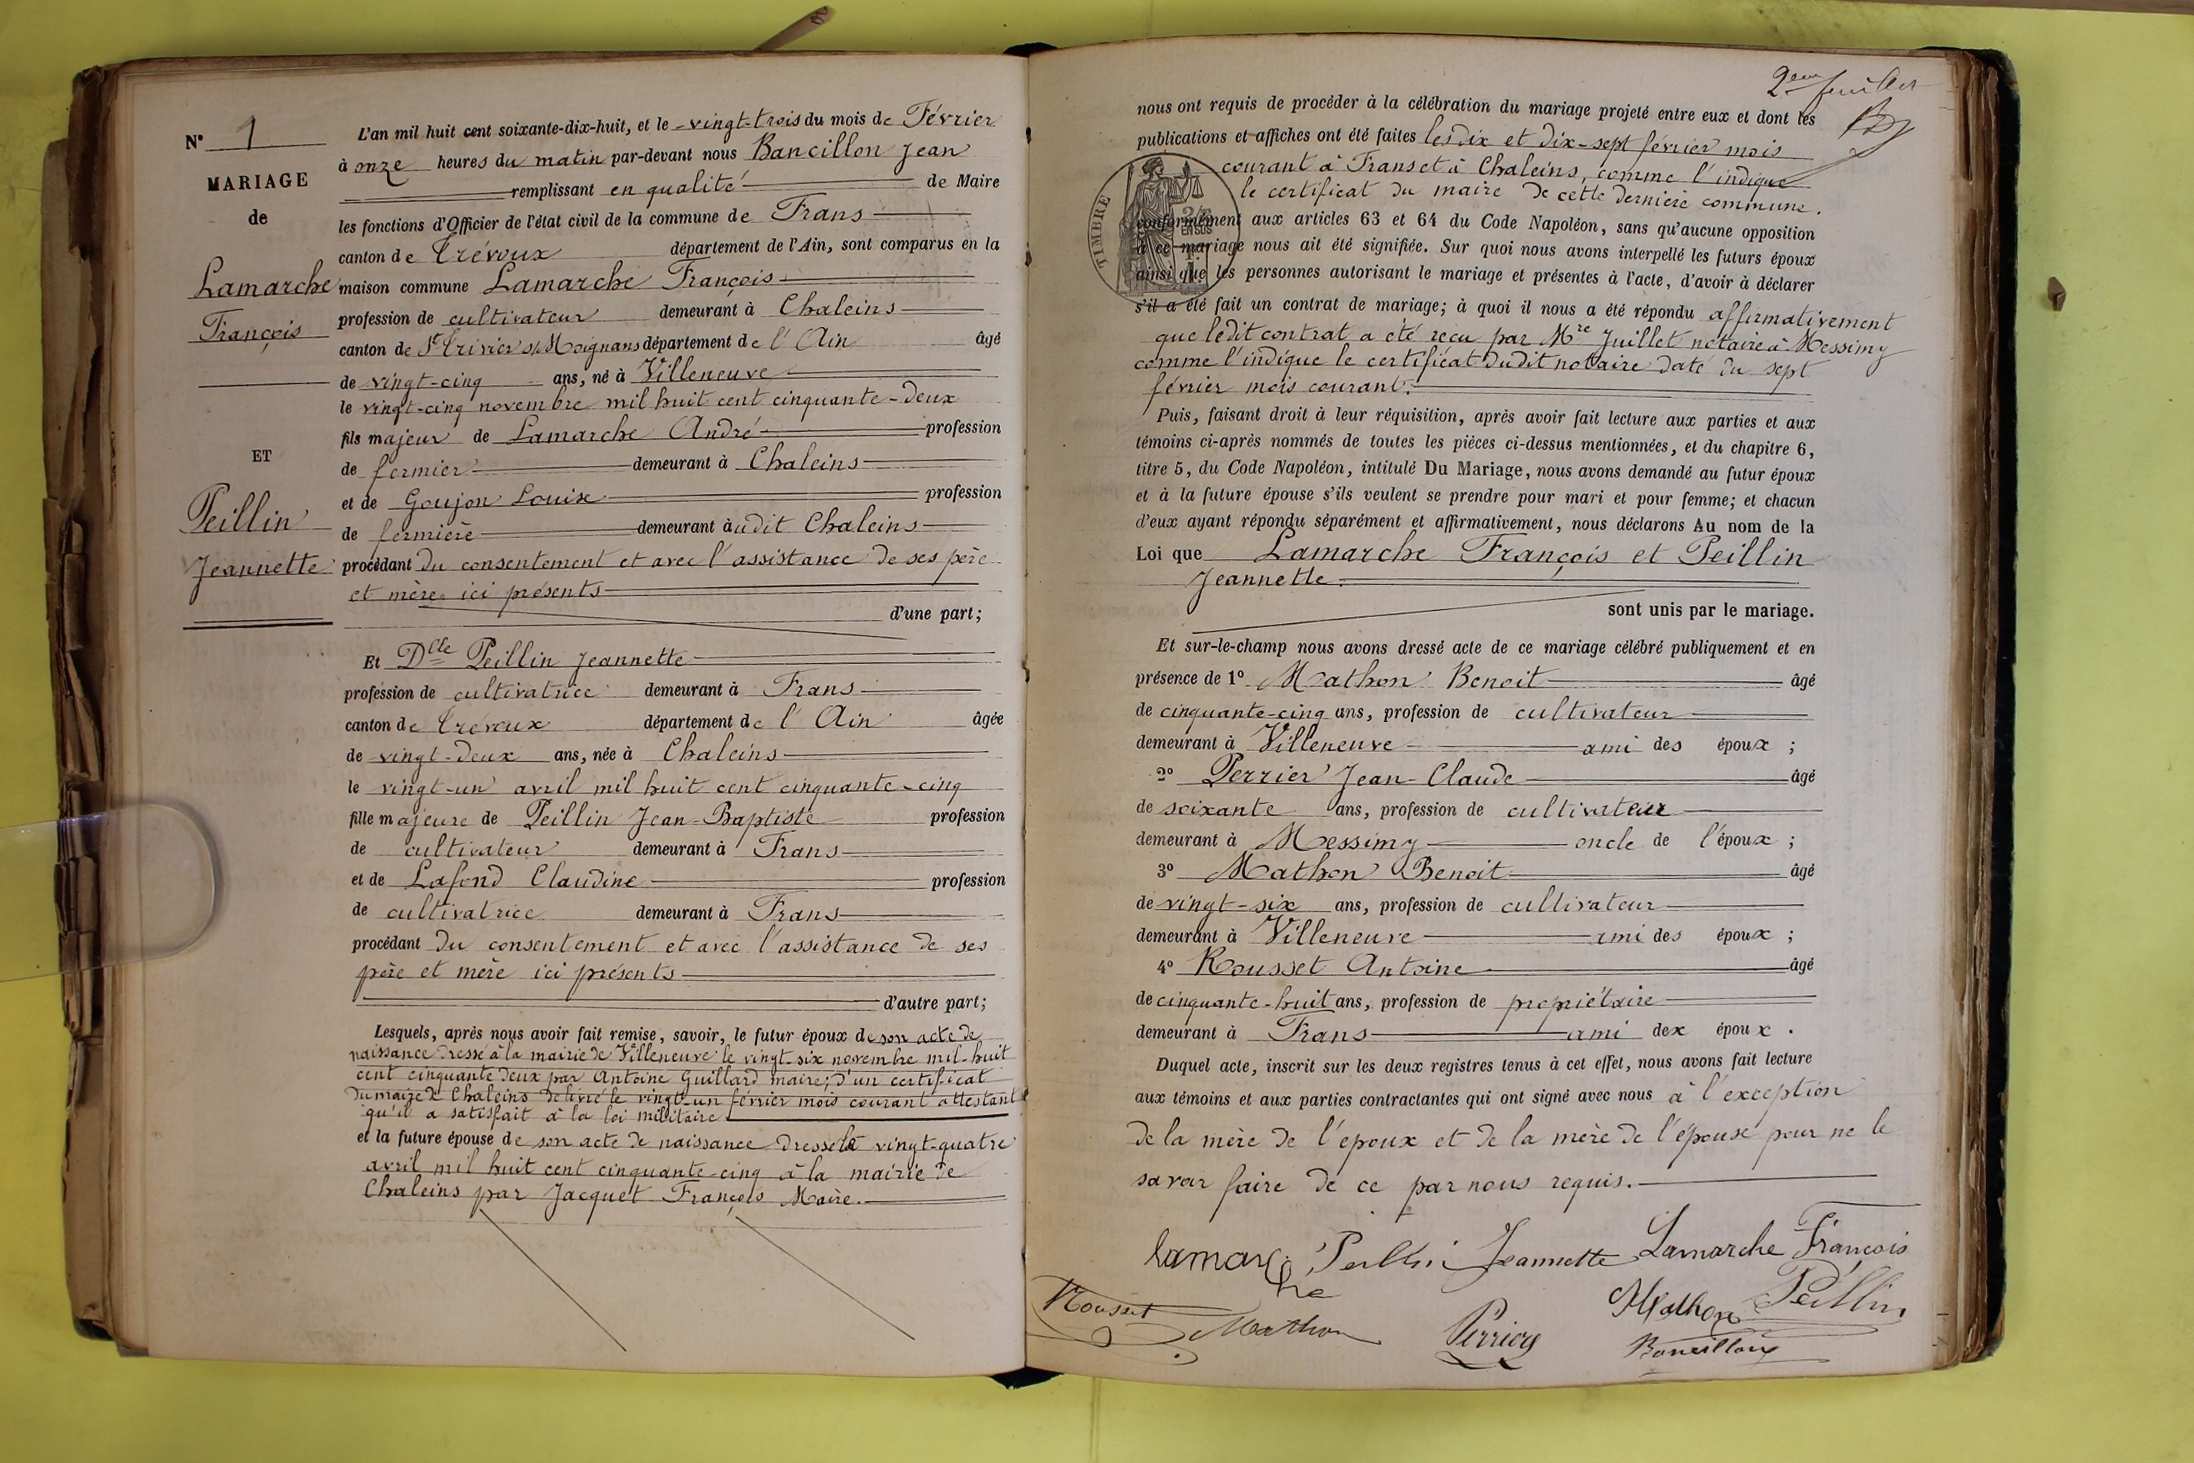 N° 1
MARIAGE
de
Lamarche
François
ET
Peillin
Jeannette
L'an mil huit cent soixante-dix-huit, et le vingt-trois du mois de Février
à onze heures du matin par-devant nous Bancillon Jean
remplissant en qualité de Maire
les fonctions d'Officier de l'état civil de la commune de Frans
canton de Trévoux département de l'Ain, sont comparus en la
maison commune Lamarche François
profession de cultivateur demeurant à Chaleins
canton de St Trivier s/ Moignans département de l'Ain âgé
de vingt-cinq ans, né à Villeneuve
le vingt-cinq novembre mil huit cent cinquante-deux
fils majeur de Lamarche André profession
de fermier demeurant à Chaleins
et de Goujon Louise profession
de fermière demeurant àudit Chaleins
procédant du consentement et avec l'assistance de ses père
et mère ici présents
d'une part;
Et Dlle Peillin Jeannette
profession de cultivatrice demeurant à Frans
canton de Trévoux département de l'Ain âgée
de vingt-deux ans, née à Chaleins
le vingt-un avril mil huit cent cinquante-cinq
fille majeure de Peillin Jean-Baptiste profession
de cultivateur demeurant à Frans
et de Lafond Claudine profession
de cultivatrice demeurant à Frans
procédant du consentement et avec l'assistance de ses
père et mère ici présents
d'autre part;
Lesquels, après nous avoir fait remise, savoir, le futur époux de son acte de
naissance dressé à la mairie de Villeneuve le vingt-six novembre mil-huit
cent cinquante deux par Antoine Guillard maire; d'un certificat
du maire de Chaleins délivré le vingt-un février mois courant attestant
qu'il a satisfait à la loi militaire
et la future épouse de son acte de naissance dressé le vingt-quatre
avril mil huit cent cinquante-cinq à la mairie de
Chaleins par Jacquet François Maire.
2eme feuillet
nous ont requis de procéder à la célébration du mariage projeté entre eux et dont les
publications et affiches ont été faites les dix et dix-sept février mois
courant à Frans et à Chaleins, comme l'indique
le certificat du maire de cette dernière commune.
TIMBRE
conformément aux articles 63 et 64 du Code Napoléon, sans qu'aucune opposition
à ce mariage nous ait été signifiée. Sur quoi nous avons interpellé les futurs époux
ainsi que les personnes autorisant le mariage et présentes à l'acte, d'avoir à déclarer
s'il a été fait un contrat de mariage; à quoi il nous a été répondu affirmativement
que ledit contrat a été reçu par Mre Juillet notaire à Messimy
comme l'indique le certificat dudit notaire daté du sept
février mois courant.
Puis, faisant droit à leur réquisition, après avoir fait lecture aux parties et aux
témoins ci-après nommés de toutes les pièces ci-dessus mentionnées, et du chapitre 6,
titre 5, du Code Napoléon, intitulé Du Mariage, nous avons demandé au futur époux
et à la future épouse s'ils veulent se prendre pour mari et pour femme; et chacun
d'eux ayant répondu séparément et affirmativement, nous déclarons Au nom de la
Loi que Lamarche François et Peillin
Jeannette
sont unis par le mariage.
Et sur-le-champ nous avons dressé acte de ce mariage célébré publiquement et en
présence de 1° Mathon Benoit âgé
de cinquante-cinq ans, profession de cultivateur
demeurant à Villeneuve ami des époux;
2° Perrier Jean-Claude âgé
de soixante ans, profession de cultivateur
demeurant à Messimy oncle de l'époux;
3° Mathon Benoit âgé
de vingt-six ans, profession de cultivateur
demeurant à Villeneuve ami des époux;
4° Rousset Antoine âgé
de cinquante-huit ans, profession de propriétaire
demeurant à Frans ami dex époux.
Duquel acte, inscrit sur les deux registres tenus à cet effet, nous avons fait lecture
aux témoins et aux parties contractantes qui ont signé avec nous à l'exception
de la mère de l'époux et de la mère de l'épouse pour ne le
savoir faire de ce par nous requis.
lamarche Peillin Jeannette Lamarche François
Rousset Mathon Perrier Mathon Peillin
Bancillon